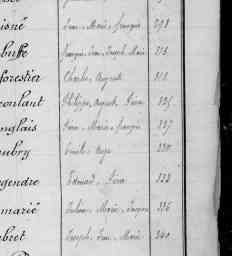 isné Jean Marie François
buffe François Jean Joseph Marie 313
forestier Charles Auguste 318
coulant Philippe Auguste Pierre 325
nglais Jean Marie François 327
aubry Emile Ange 330
egendre Edmond Pierre 333
marié Julien Marie François 336
bret Joseph Jean Marie 340